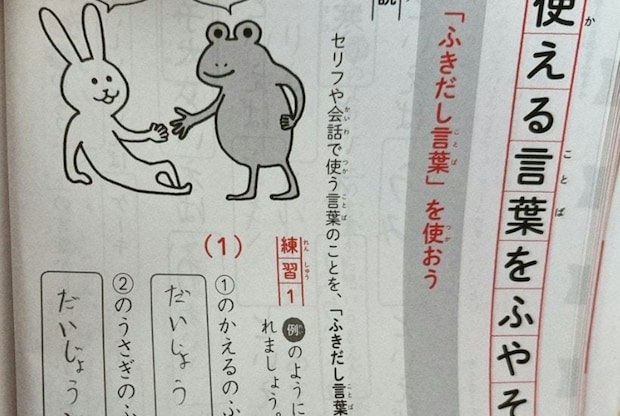 使える言葉をふやそ
「ふきだし言葉」を使おう
説
セリフや会話で使う言葉のことを、「ふきだし言葉
練習1
例のように
れましょう。
(1)
①のかえるのふ
だいじょう
②のうさぎのふ
だいじょう